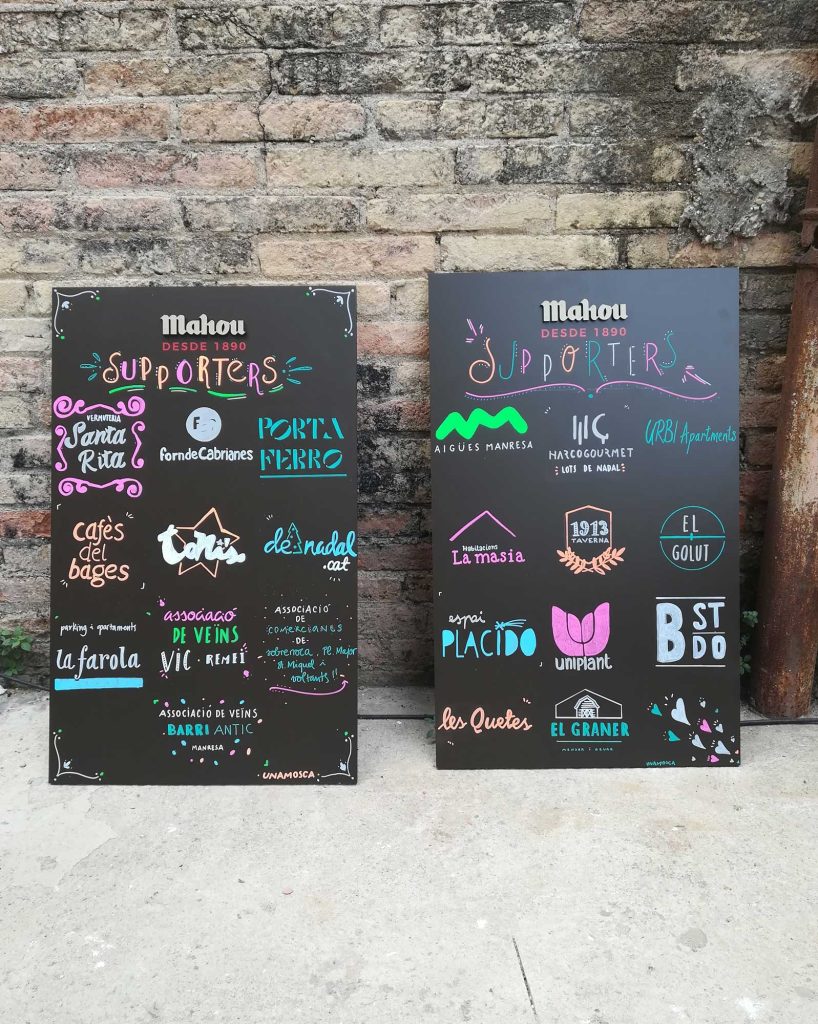 Mahou
DESDE 1890
SUPPORTERS
VERMUTERIA
Santa
Rita
F
forn de Cabrianes
PORTA
FERRO
cafès
del
bages
tonis
denadal
.cat
parking i apartaments
la farola
associació
DE VEÏNS
VIC·REMEI
ASSOCIACIÓ
DE
COMERCIANTS
DE·
sobreroca, Pl. Major
St. Miquel i
voltants!!
ASSOCIACIÓ DE VEÏNS
BARRI ANTIC
MANRESA
UNAMOSCA
Mahou
DESDE 1890
SUPPORTERS
AIGÜES MANRESA
HARCOGOURMET
LOTS DE NADAL
URBI Apartments
Habitacions
La masia
1913
TAVERNA
EL
GOLUT
espai
PLACIDO
uniplant
B ST
DO
les Quetes
EL GRANER
menjar i beure
UNAMOSCA